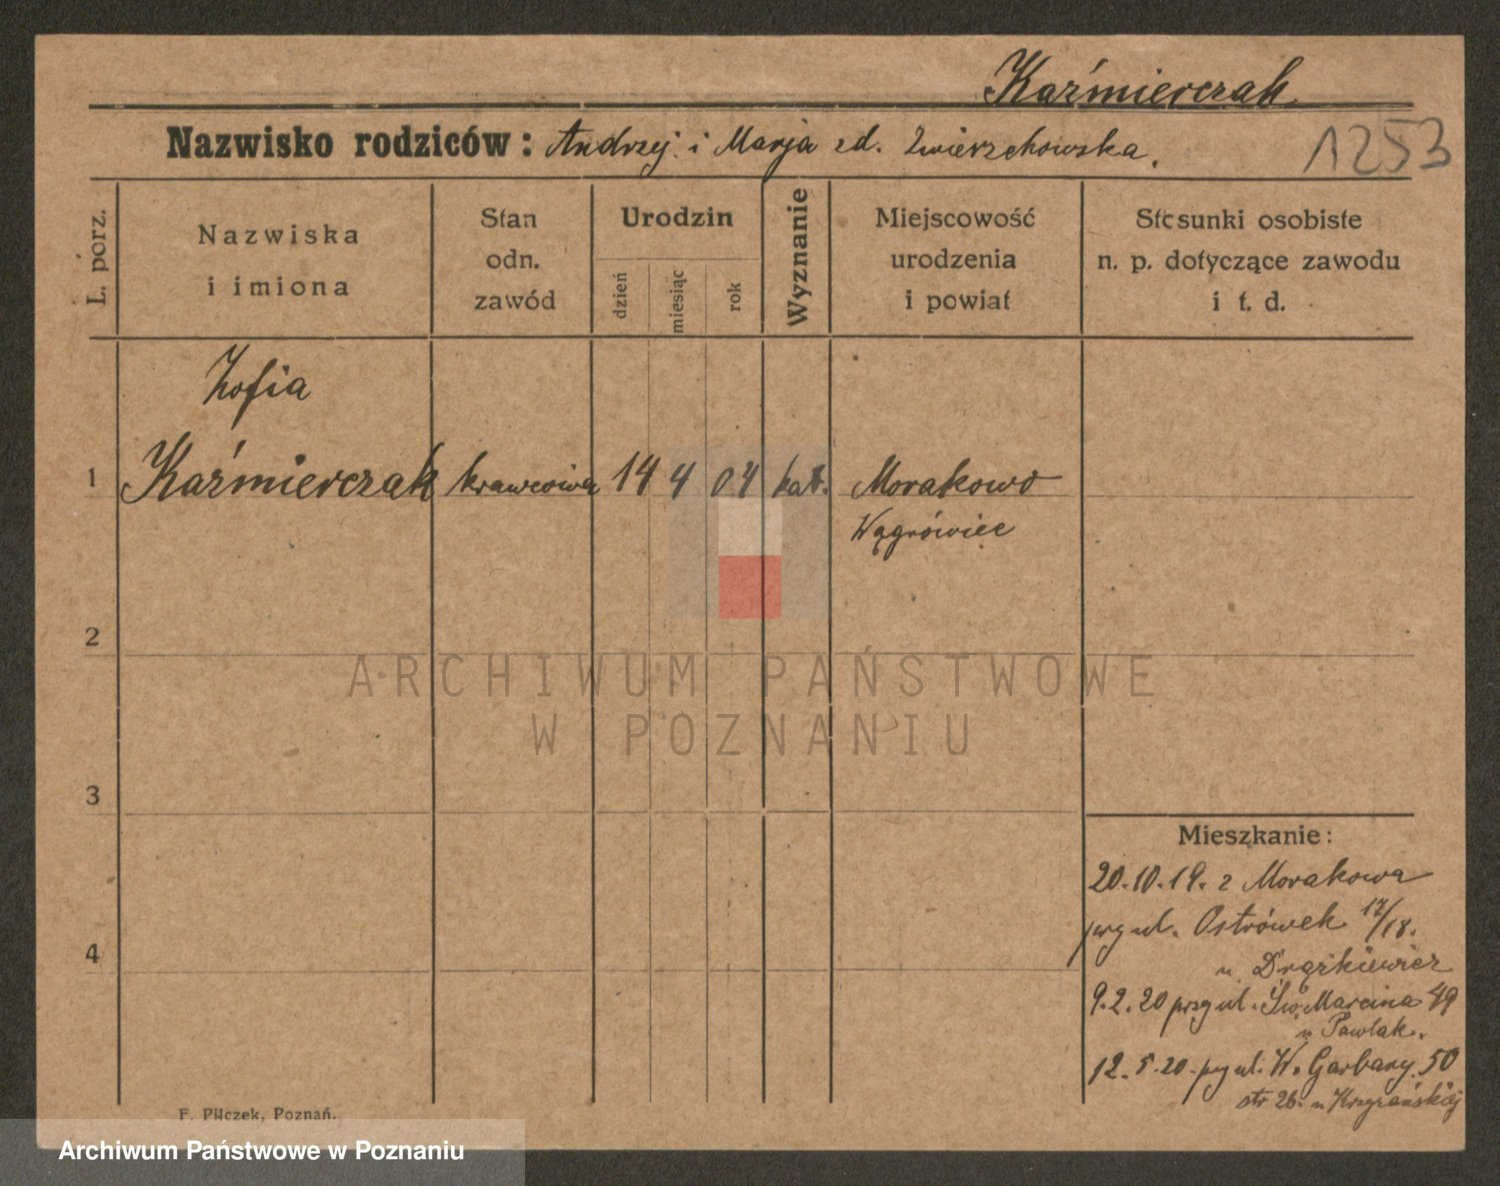 Kaźmierczak
Nazwisko rodziców: Andrzej i Marja zd. Zwierzchowska.
1253
L. porz.
Nazwiska
i imiona
Stan
odn.
zawód
Urodzin
dzień
miesiąc
rok
Wyznanie
Miejscowość
urodzenia
i powiat
Stosunki osobiste
n. p. dotyczące zawodu
i t. d.
Zofia
1 Kaźmierczak krawcowa 14 4 04 kat. Morakowo
Wągrówiec
2
ARCHIWUM PAŃSTWOWE
W POZNANIU
3
Mieszkanie:
20.10.19. z Morakowa
przy ul. Ostrówek 17/18.
u Drążkiewicz
4
9.2.20 przy ul. Św. Marcina 49
u Pawlak.
12.5.20 przy ul. W. Garbary 50
str 26. u
F. Pilczek, Poznań.
Archiwum Państwowe w Poznaniu